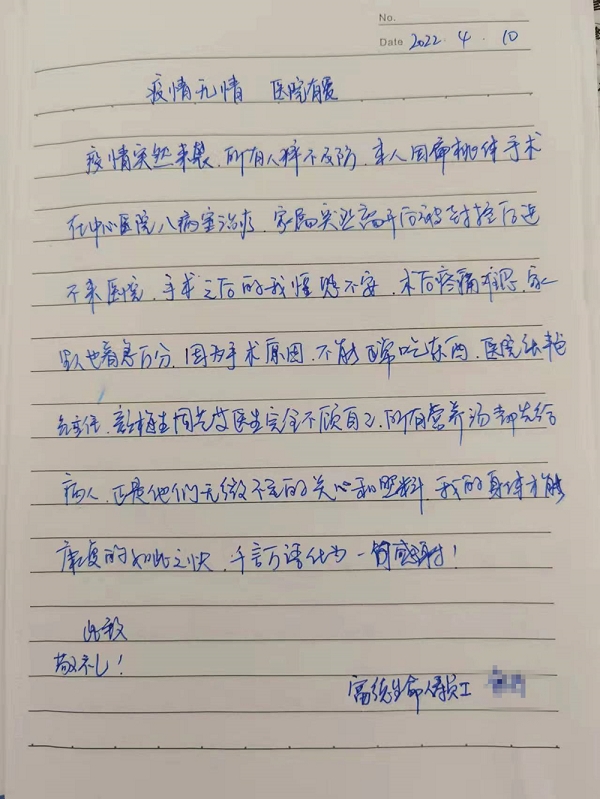 No.
Date 2022.4.10
疫情无情 医院有爱
疫情突然来袭,所有人猝不及防,本人因扁桃体手术
在中心医院八病室治疗,家属突然离开后被封控后进
不来医院,手术之后的我惶恐不安,术后疼痛难忍,家
人也着急万分,因为手术原因,不能正常吃东西,医院张
主任,医生完全不顾自己,所有营养汤都先给
病人,正是他们无微不至的关心和照料,我的身体才能
康复的如此之快,千言万语化为一简感谢!
此致
敬礼!
富德生命保员工